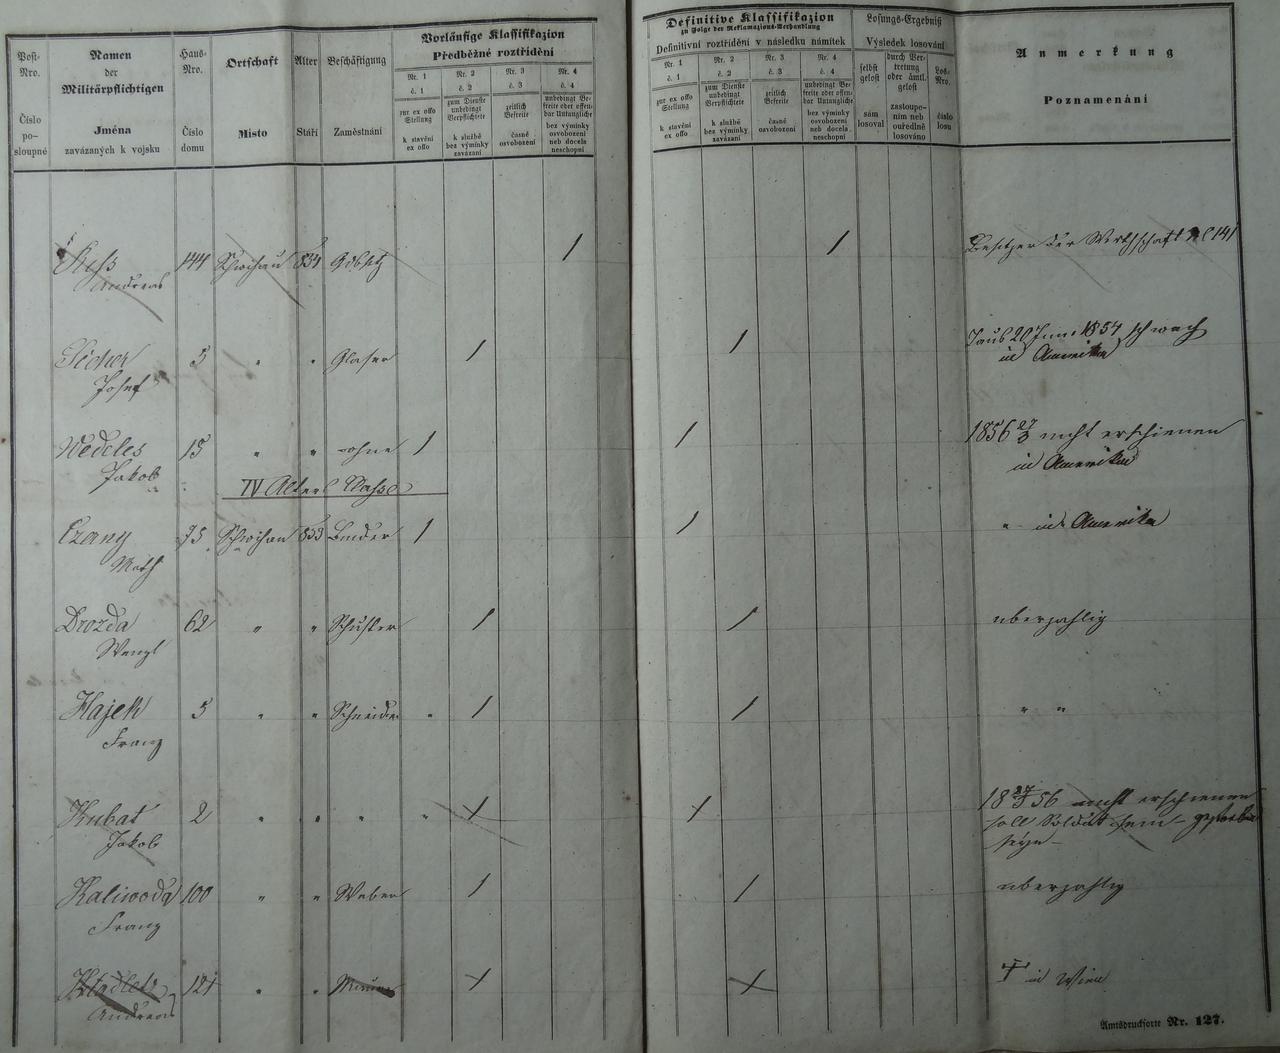 Vorläufige Klassifikazion
Předběžné roztřídění
Post-
Nro.
Číslo
po-
sloupné
Namen
der
Militärpflichtigen
Jména
zavázaných k vojsku
Haus-
Nro.
Číslo
domu
Ortschaft
Místo
Alter
Stáří
Beschäftigung
Zaměstnání
Nr. 1
č. 1
zur ex offo
Stellung
k stavění
ex offo
Nr. 2
č. 2
zum Dienste
unbedingt
Verpflichtete
k službě
bez výmínky
zavázaní
Nr. 3
č. 3
zeitlich
Befreite
časně
osvobození
Nr. 4
č. 4
unbedingt Be-
freite oder offen-
bar Untaugliche
bez výmínky
osvobození
neb docela
neschopní
Definitive Klassifikazion
zu Folge der Reklamazions-Verhandlung
Definitivní roztřídění v následku námitek
Nr. 1
č. 1
zur ex offo
Stellung
k stavění
ex offo
Nr. 2
č. 2
zum Dienste
unbedingt
Verpflichtete
k službě
bez výmínky
zavázaní
Nr. 3
č. 3
zeitlich
Befreite
časně
osvobození
Nr. 4
č. 4
unbedingt Be-
freite oder offen-
bar Untaugliche
bez výmínky
osvobození
neb docela
neschopní
Losungs-Ergebniß
Výsledek losování
selbst
gelost
sám
losoval
durch Ver-
tretung
oder ämtl.
gelost
zastoupe-
ním neb
ouředlně
losováno
Los-
Nro.
číslo
losu
Anmerkung
Poznamenání
144 Schwihau 834 1 1 Besitzer der Wirthschaft N C 141
Andreas
5 " " Glaser 1 1 Taub 20 Juni 1854 schwach
Josef in Amerika
Wedeles 15 " " ohne 1 1 1856 27/3 nicht erschienen
Jakob in Amerika
IV Alters Klasse
Czerny 75 Schwihau 833 Binder 1 1 " in Amerika
Math
Drozda 62 " " Schuster 1 1 überzahlig
Wenzl
Hajek 5 " " Schneider " 1 1 " "
Franz
Kubat 2 " " " " 1 1 18 27/3 56 nicht erschienen
Jakob soll Soldat sein – gestorben
seyn –
Kaliwoda 100 " " Weber 1 1 überzahlig
Franz
121 " " 1 1 † in Wien
Andreas
Amtsdrucksorte Nr. 127.